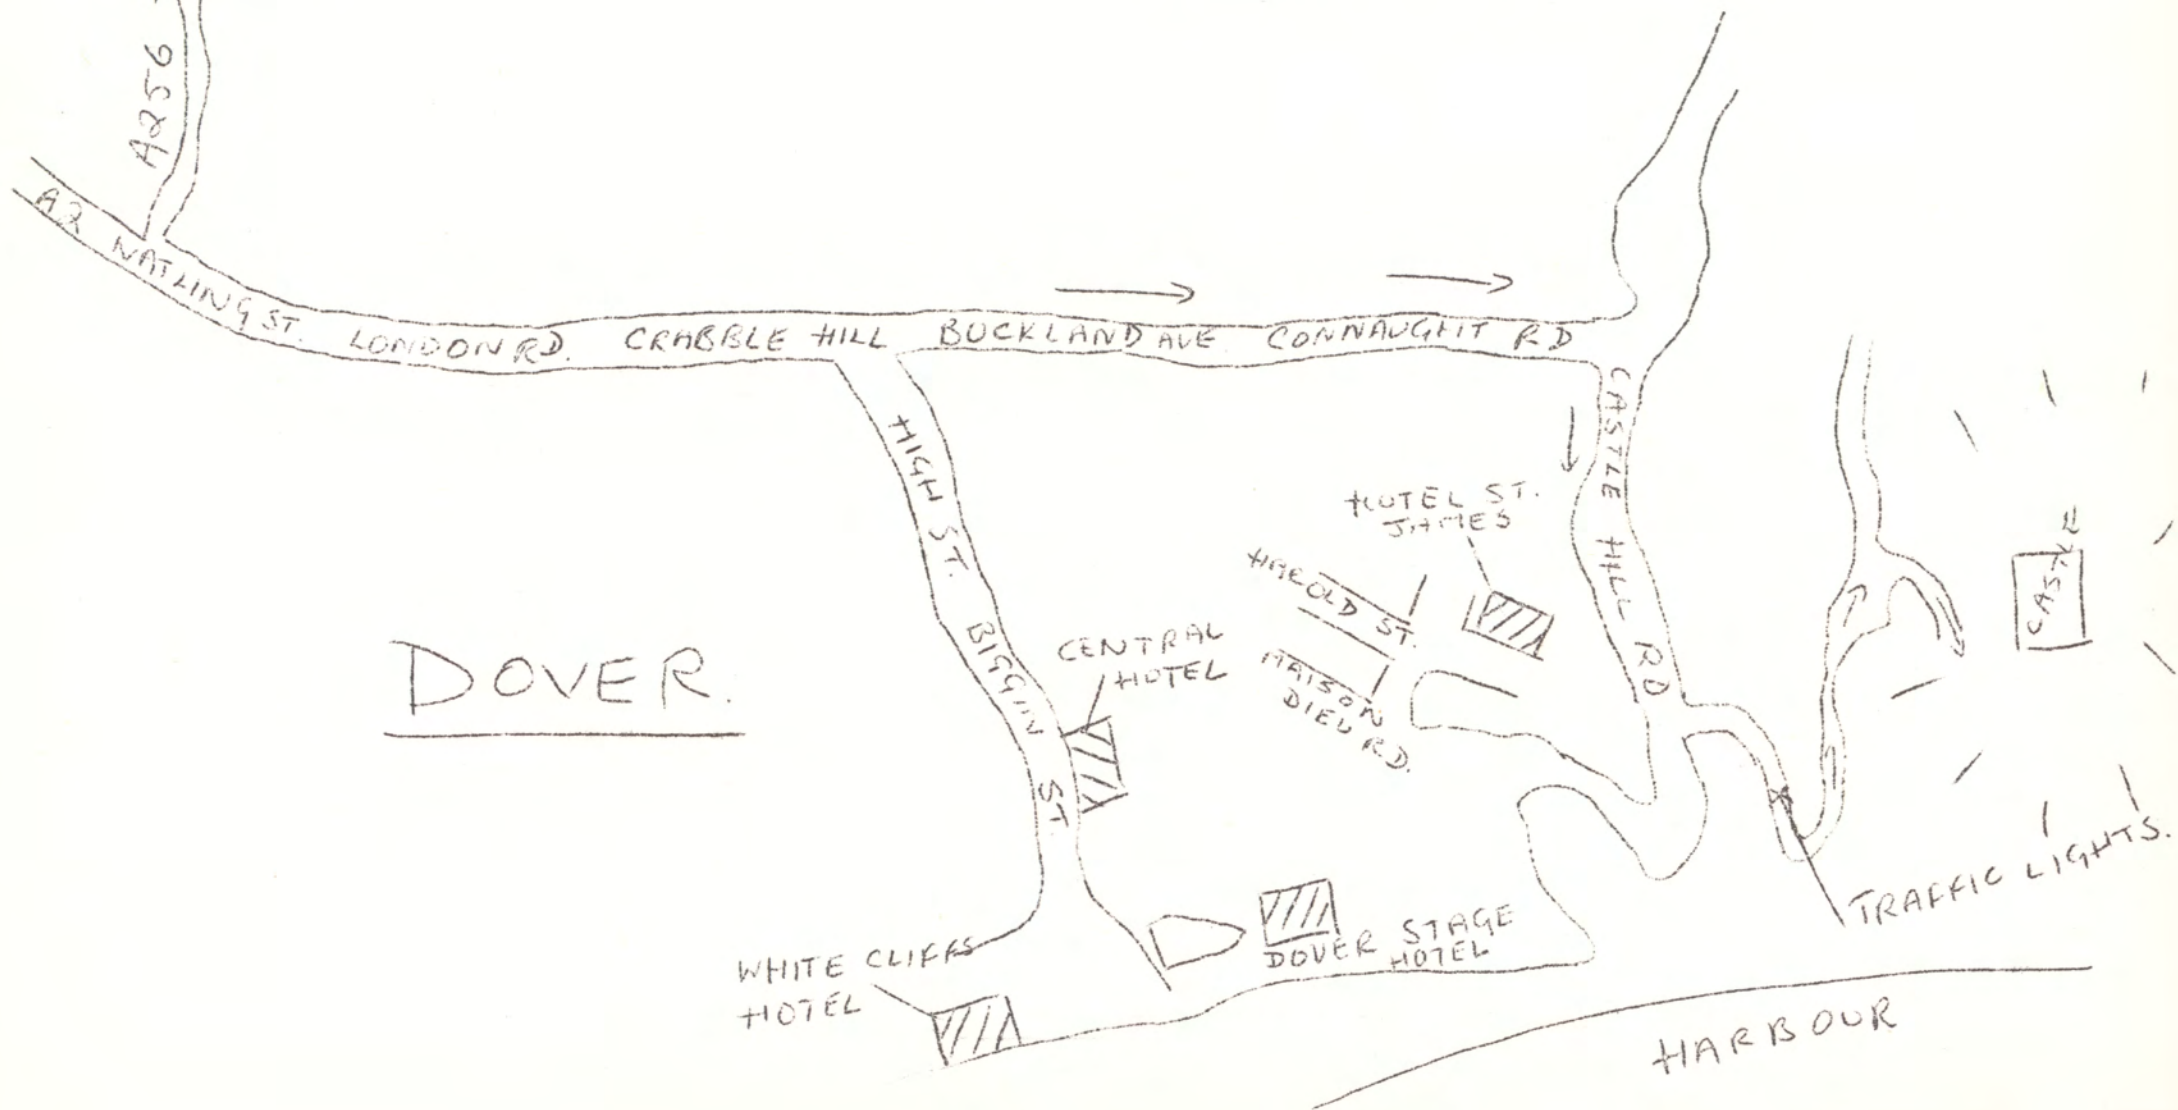 A256
A2 WATLING ST. LONDON RD. CRABBLE HILL BUCKLAND AVE CONNAUGHT RD
CASTLE HILL RD
HIGH ST. BIGGIN ST.
HOTEL ST.
JAMES
HAROLD ST.
MAISON
DIEU RD.
CENTRAL
HOTEL
CASTLE
DOVER.
TRAFFIC LIGHTS.
DOVER STAGE
HOTEL
WHITE CLIFFS
HOTEL
HARBOUR